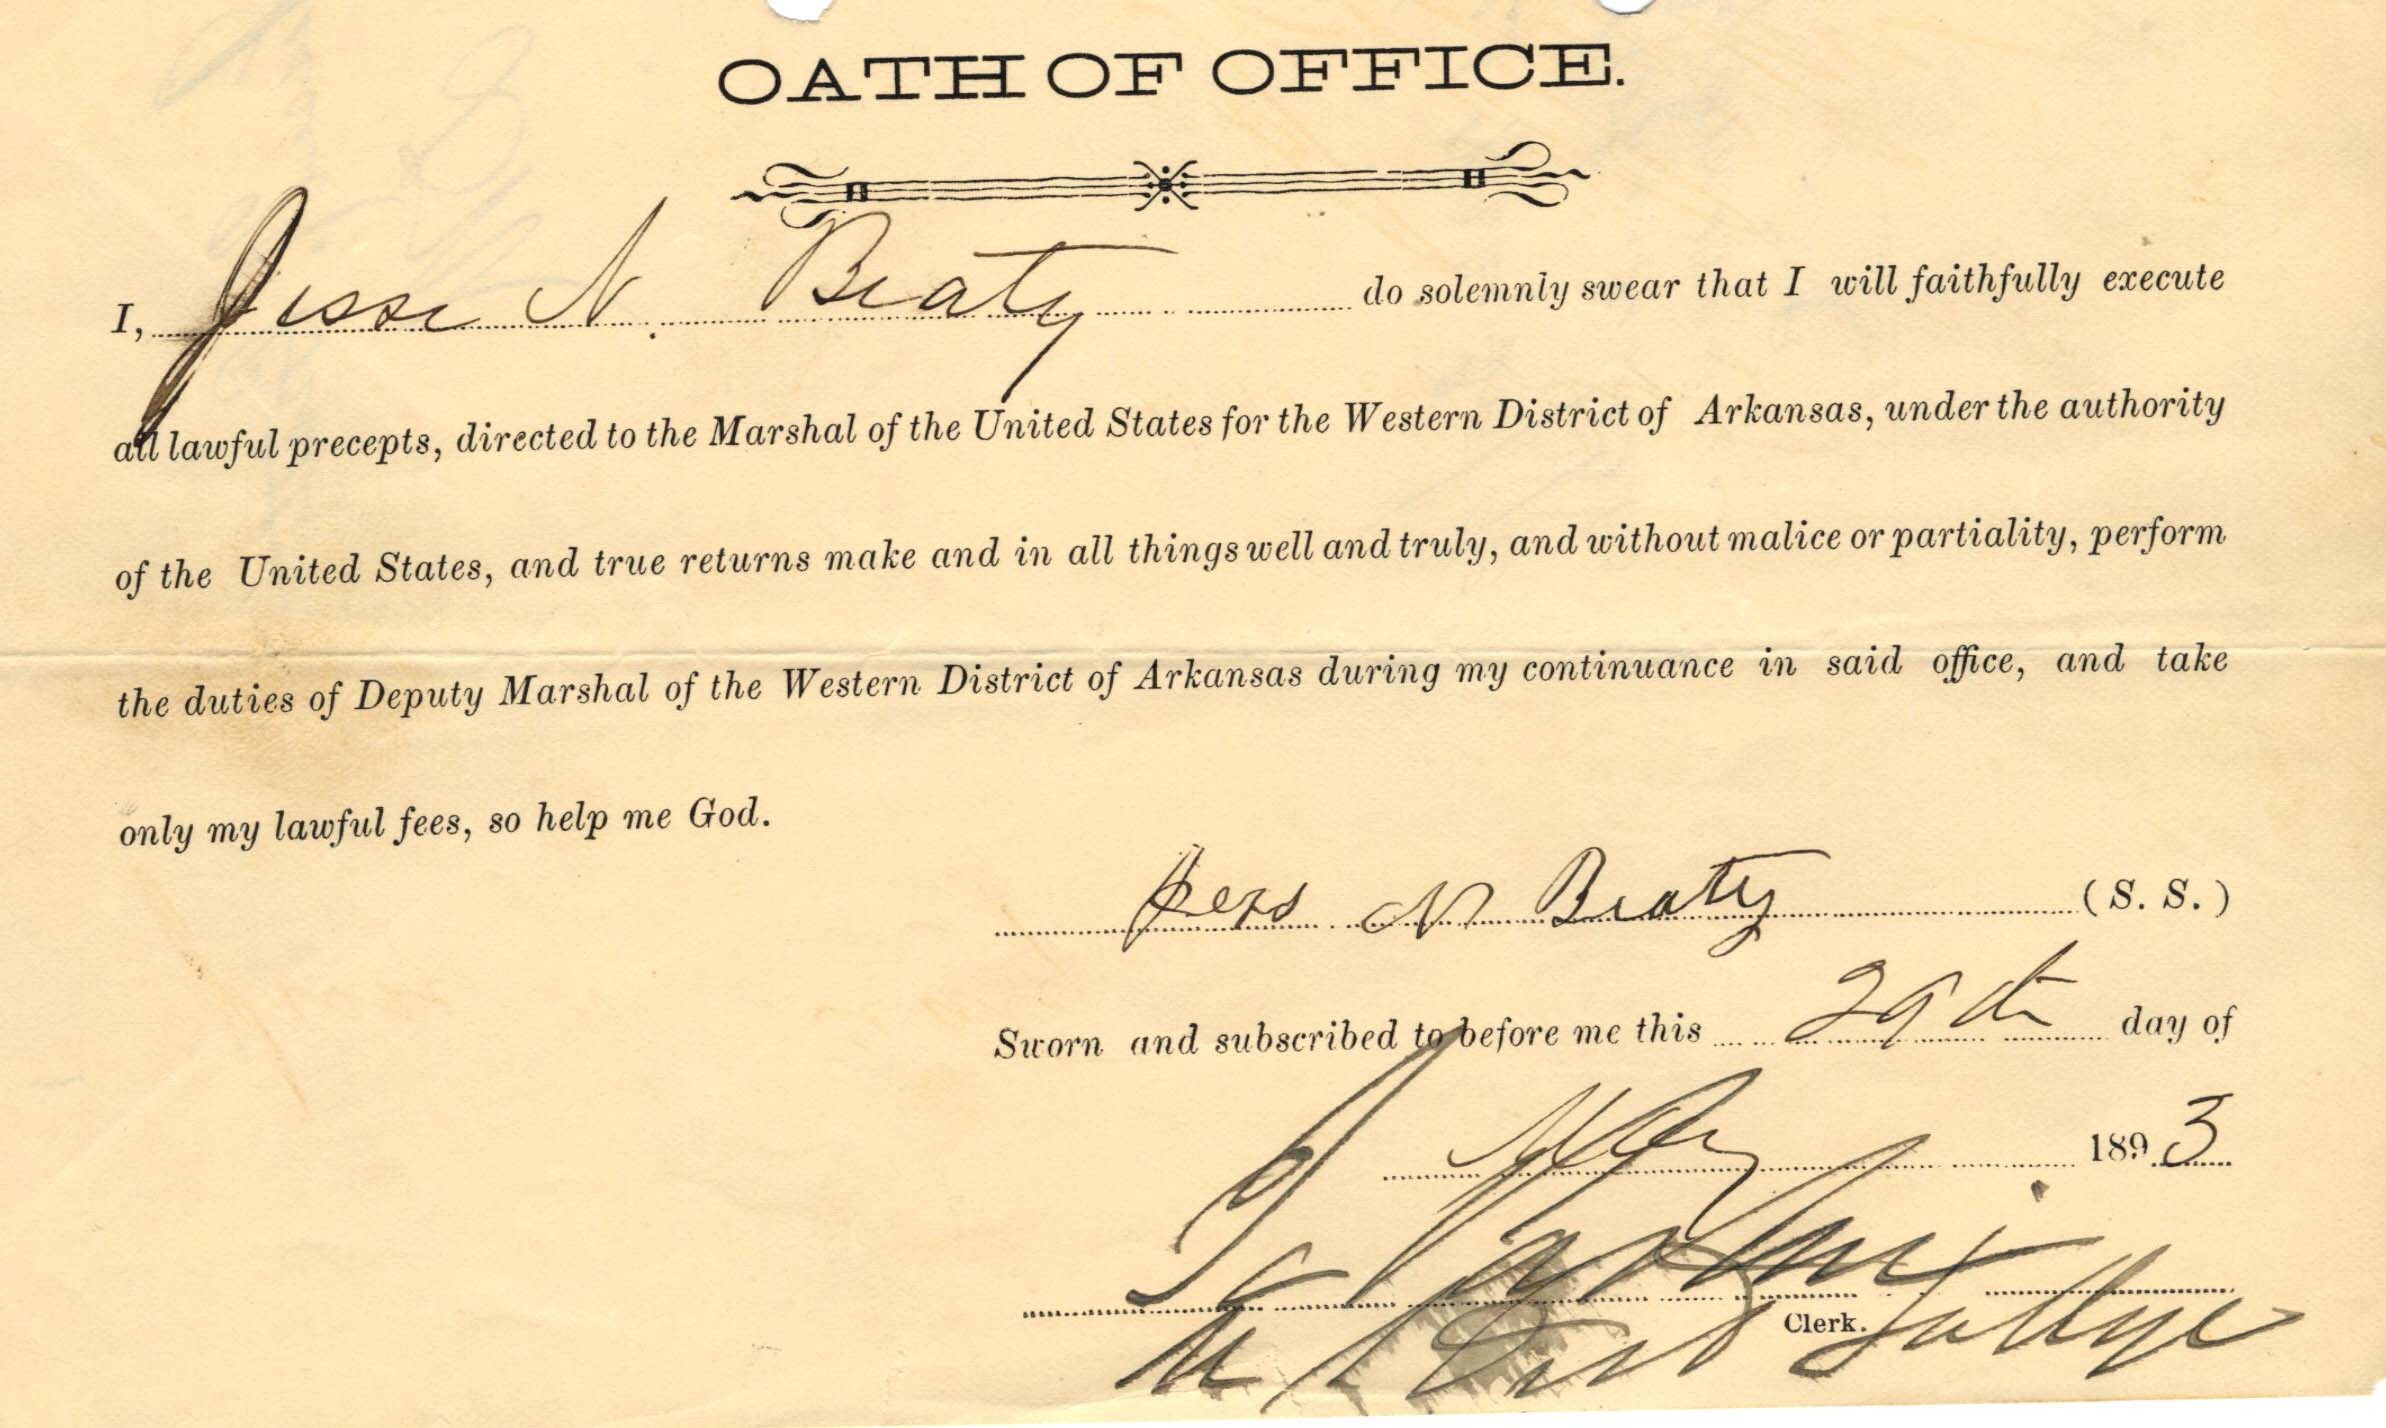 OATH OF OFFICE.
I, Jesse N. Beaty do solemnly swear that I will faithfully execute
all lawful precepts, directed to the Marshal of the United States for the Western District of Arkansas, under the authority
of the United States, and true returns make and in all things well and truly, and without malice or partiality, perform
the duties of Deputy Marshal of the Western District of Arkansas during my continuance in said office, and take
only my lawful fees, so help me God.
Jess N Beaty (S. S.)
Sworn and subscribed to before me this 29th day of
May 1893
I. C. Parker
Clerk.
U S Dist Judge